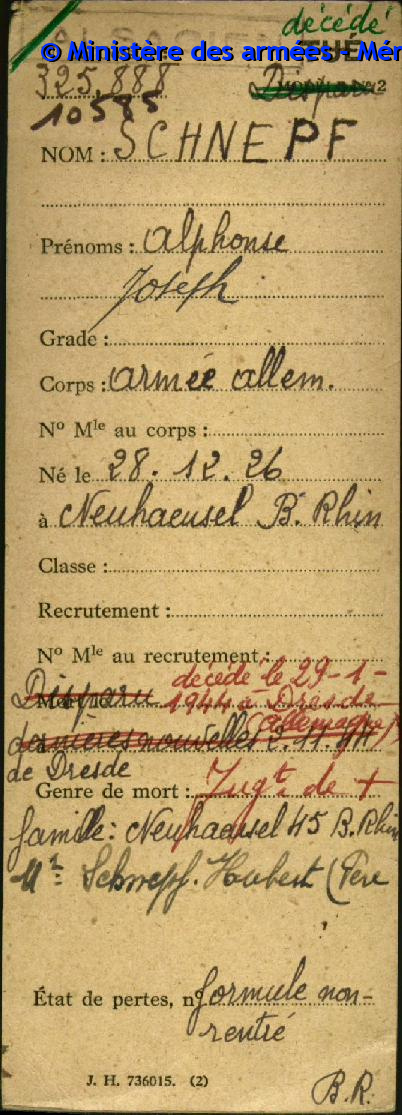 décédé
TUÉ
© Ministère des armées - Mér
325.888
Disparu 2
10585
NOM : SCHNEPF
Prénoms : Alphonse
Joseph
Grade :
Corps : armée allem.
Nº Mle au corps :
Né le 28.12.26
à Neuhaeusel B. Rhin
Classe :
Recrutement :
Nº Mle au recrutement :
décédé le 29-1-
Disparu 1944 à Dresde
(allemagne)
dernières nouvelles 2.11.44
de Dresde
Genre de mort : Jugt de +
famille : Neuhaeusel 45 B. Rhin
Mr Schnepf Hubert (Père
État de pertes, nº formule non-
rentré
J. H. 736015. (2)
B.R.